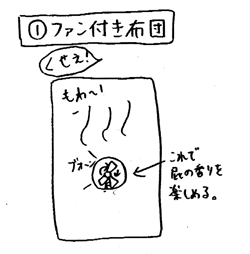 ①ファン付き布団
くせえ!
もわ〜!
ブォーン
これで
屁の香りを
楽しめる。